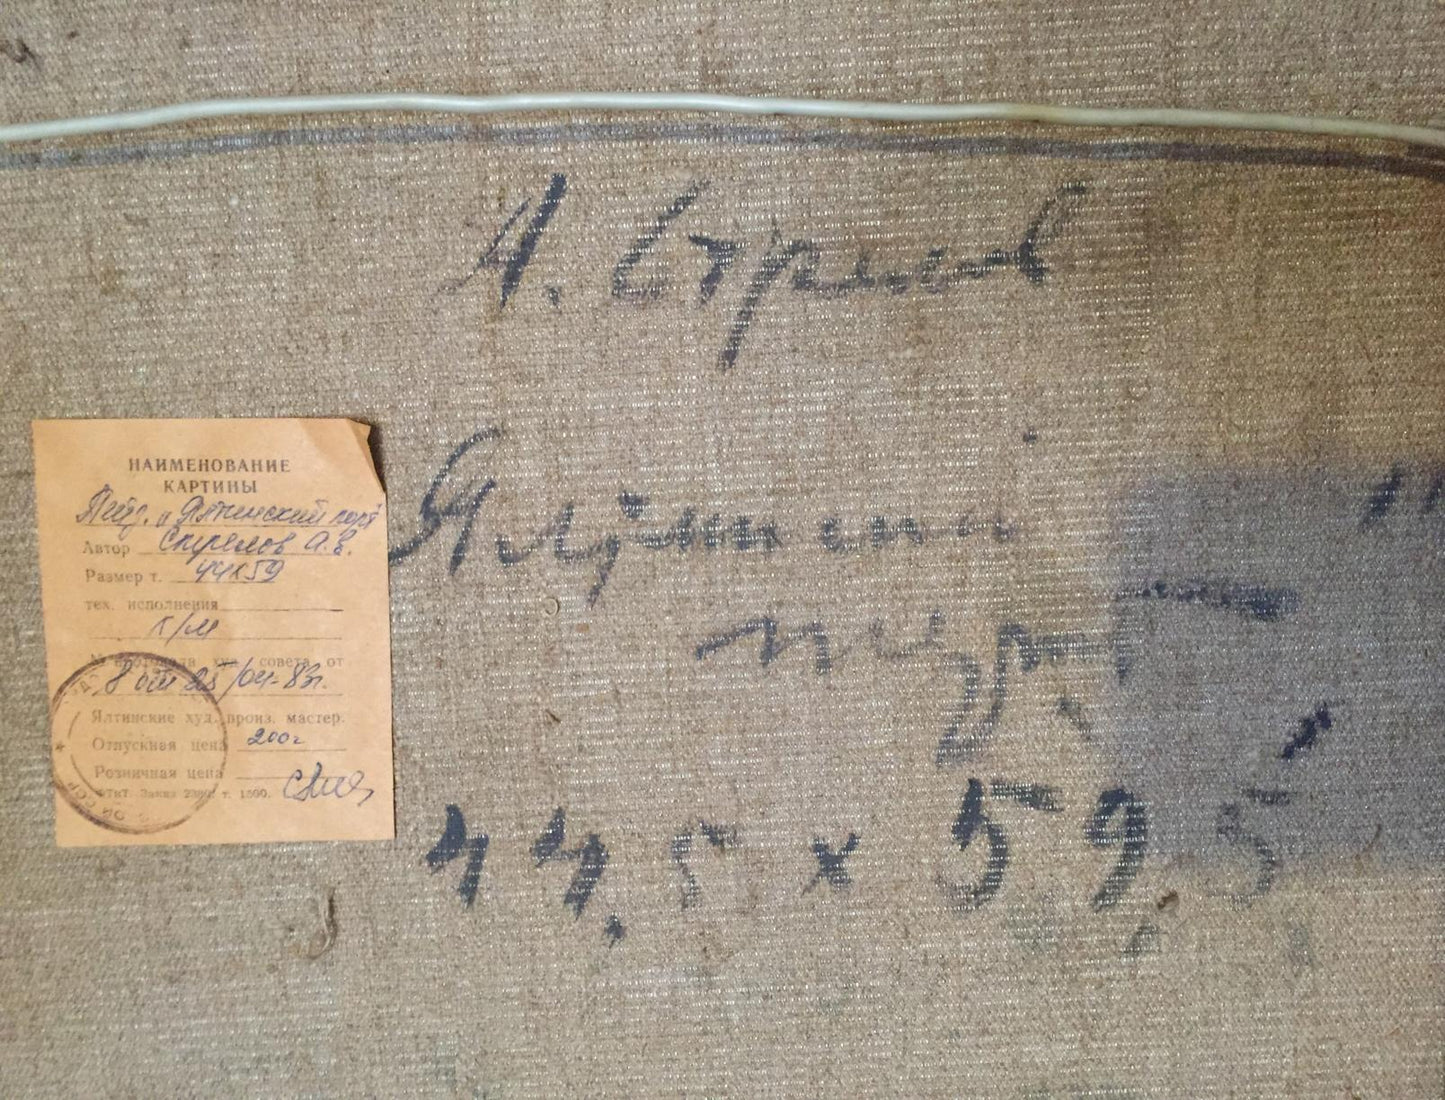 А. Стрелов
Ялтинский
порт
44,5 х 59,5
НАИМЕНОВАНИЕ
КАРТИНЫ
Пейз. „Ялтинский порт
Автор Стрелов А.В.
Размер т. 44х59
тех. исполнения
к/м
худ. совета от
8 от 25/04-83г.
Ялтинские худ. произ. мастер.
Отпускная цена 200
Розничная цена
Заказ т. 1500.